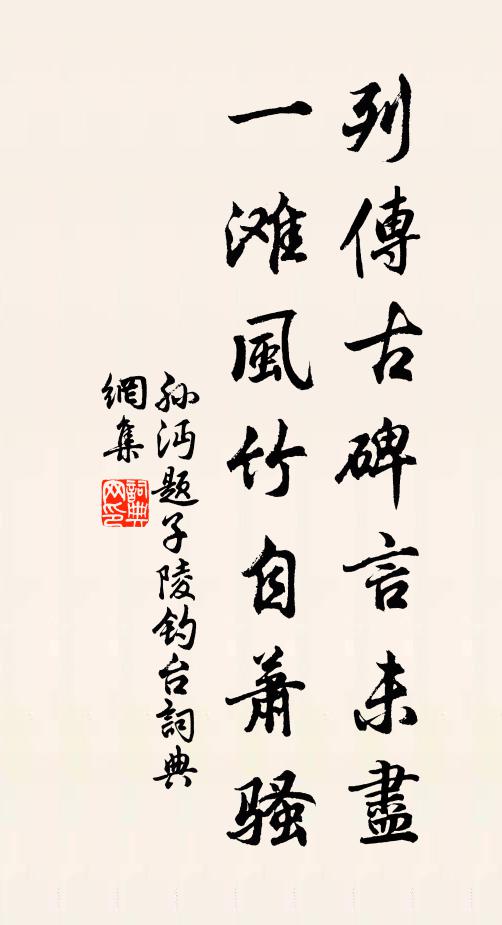 列傳古碑言未盡
一滩風竹自蕭骚
孙沔题子陵钓台詞典
網集
詞典網印